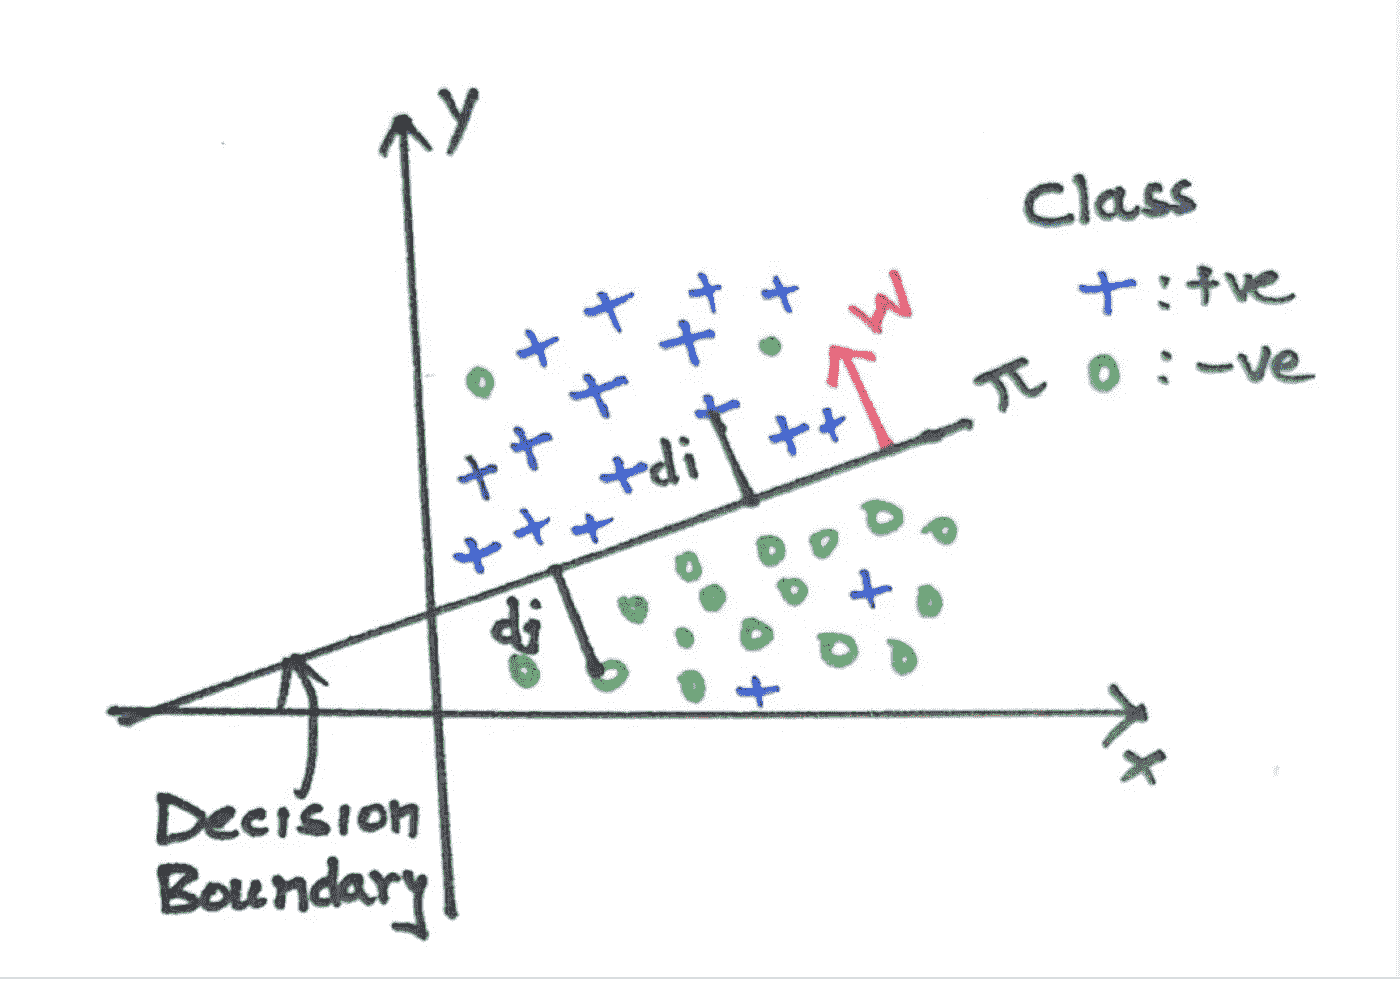 y
Class
+ : +ve
o : -ve
W
π
di
dj
x
Decision
Boundary